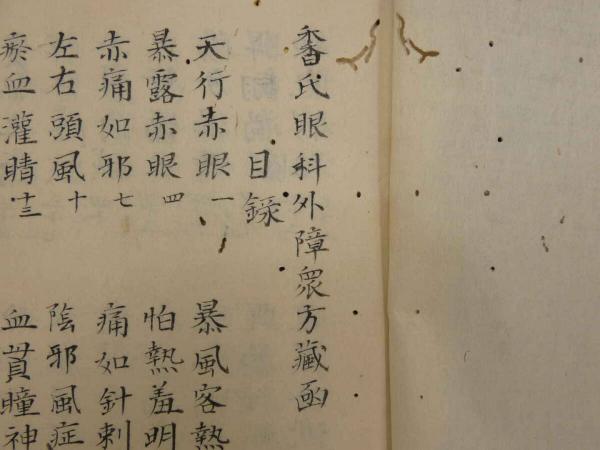 香氏眼科外障眾方藏函
目錄
天行赤眼 一 暴風客熱
暴露赤眼 四 怕熱羞明
赤痛如邪 七 痛如針刺
左右頭風 十 陰邪風症
瘀血灌睛 十三 血貫瞳神